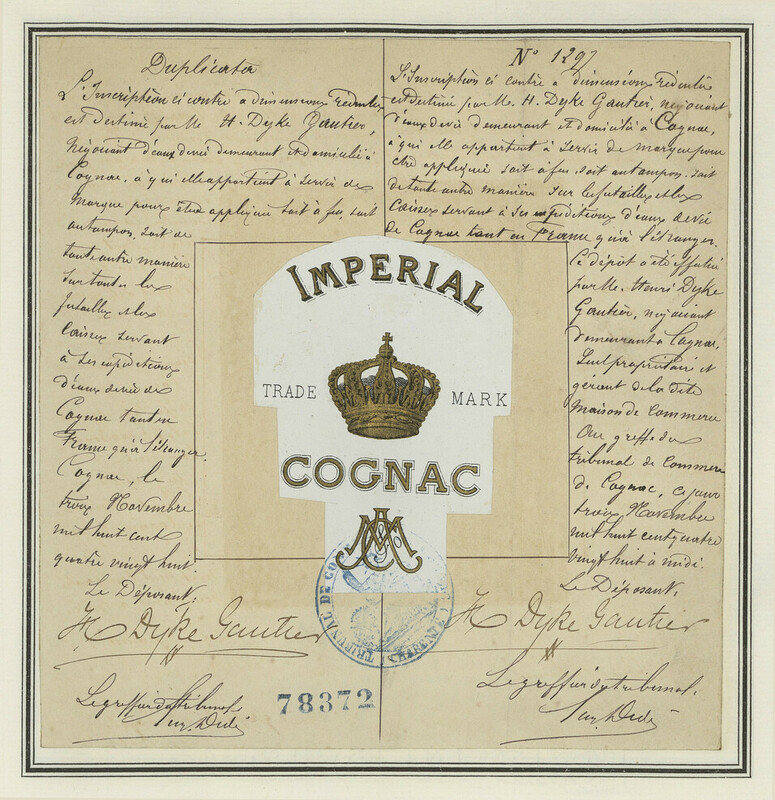 Duplicata
L'Inscription ci contre à dimensions réduites
est destiné par Mr H. Dyke Gautier,
Négociant d'eaux devie demeurant et domicilié à
Cognac, à qui elle appartient à servir de
marque pour être appliqué soit à feu, soit
autampon, soit de
toute autre manière
sur toutes les
futailles et les
caisses servant
à ses expéditions
d'eaux devie de
Cognac tant en
France qu'à l'étranger.
Cognac, le
trois Novembre
mil huit cent
quatre vingt huit.
Le Déposant.
H Dyke Gautier
Le greffier du tribunal.
No 1297
L'Inscription ci contre à dimensions réduites
est destiné par Mr. H. Dyke Gautier, négociant
d'eaux devie demeurant et domicilié à Cognac,
à qui elle appartient à servir de marque pour
être appliqué soit à feu, soit autampon, soit
de toute autre manière sur les futailles et les
caisses servant à ses expéditions d'eaux de vie
de Cognac tant en France qu'à l'étranger.
Ce dépôt a été effectué
par Mr. Henri Dyke
Gautier, négociant
demeurant à Cognac,
seul propriétaire et
gérant de la dite
Maison de Commerce
au greffe du
tribunal de commerce
de Cognac, ce jour
trois Novembre
mil huit cent quatre
vingt huit à midi.
Le Déposant.
H Dyke Gautier
Le greffier du tribunal.
IMPERIAL
TRADE MARK
COGNAC
TRIBUNAL DE CO
CHARENTE
78372